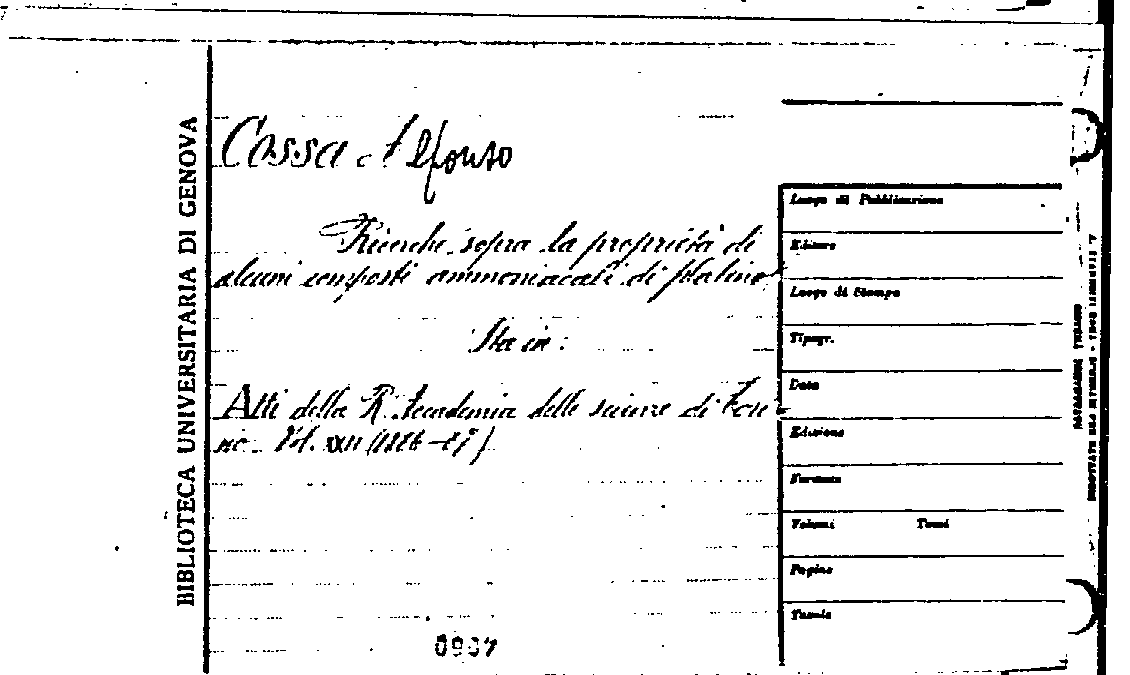 BIBLIOTECA UNIVERSITARIA DI GENOVA
Cossa Alfonso
Ricerche sopra la proprietà di
alcuni composti ammoniacali di platino
Sta in:
Atti della R. Accademia delle scienze di Tori-
no. Vol. XXII (1886-87)
Luogo di Pubblicazione
Editore
Luogo di Stampa
Tipogr.
Data
Edizione
Formato
Volumi Tomi
Pagine
Tavole